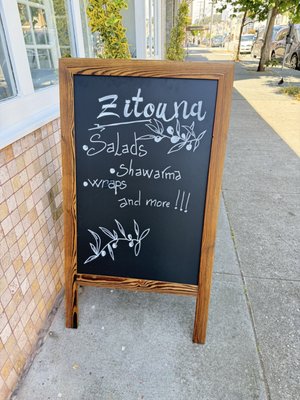 Zitouna
• Salads
• Shawarma
• wraps
and more !!!